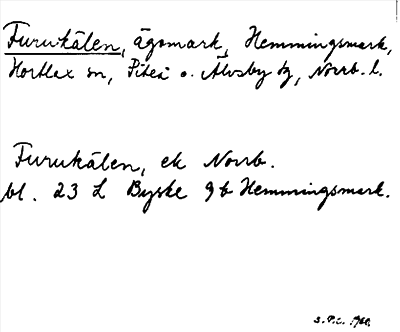 Furukålen, ägomark, Hemmingsmark,
Hortlax sn, Piteå o. Älvsby tg, Norrb. l.
Furukålen, ek Norrb.
bl. 23 L Byske 9 b Hemmingsmark.
S.P.C. 1960.